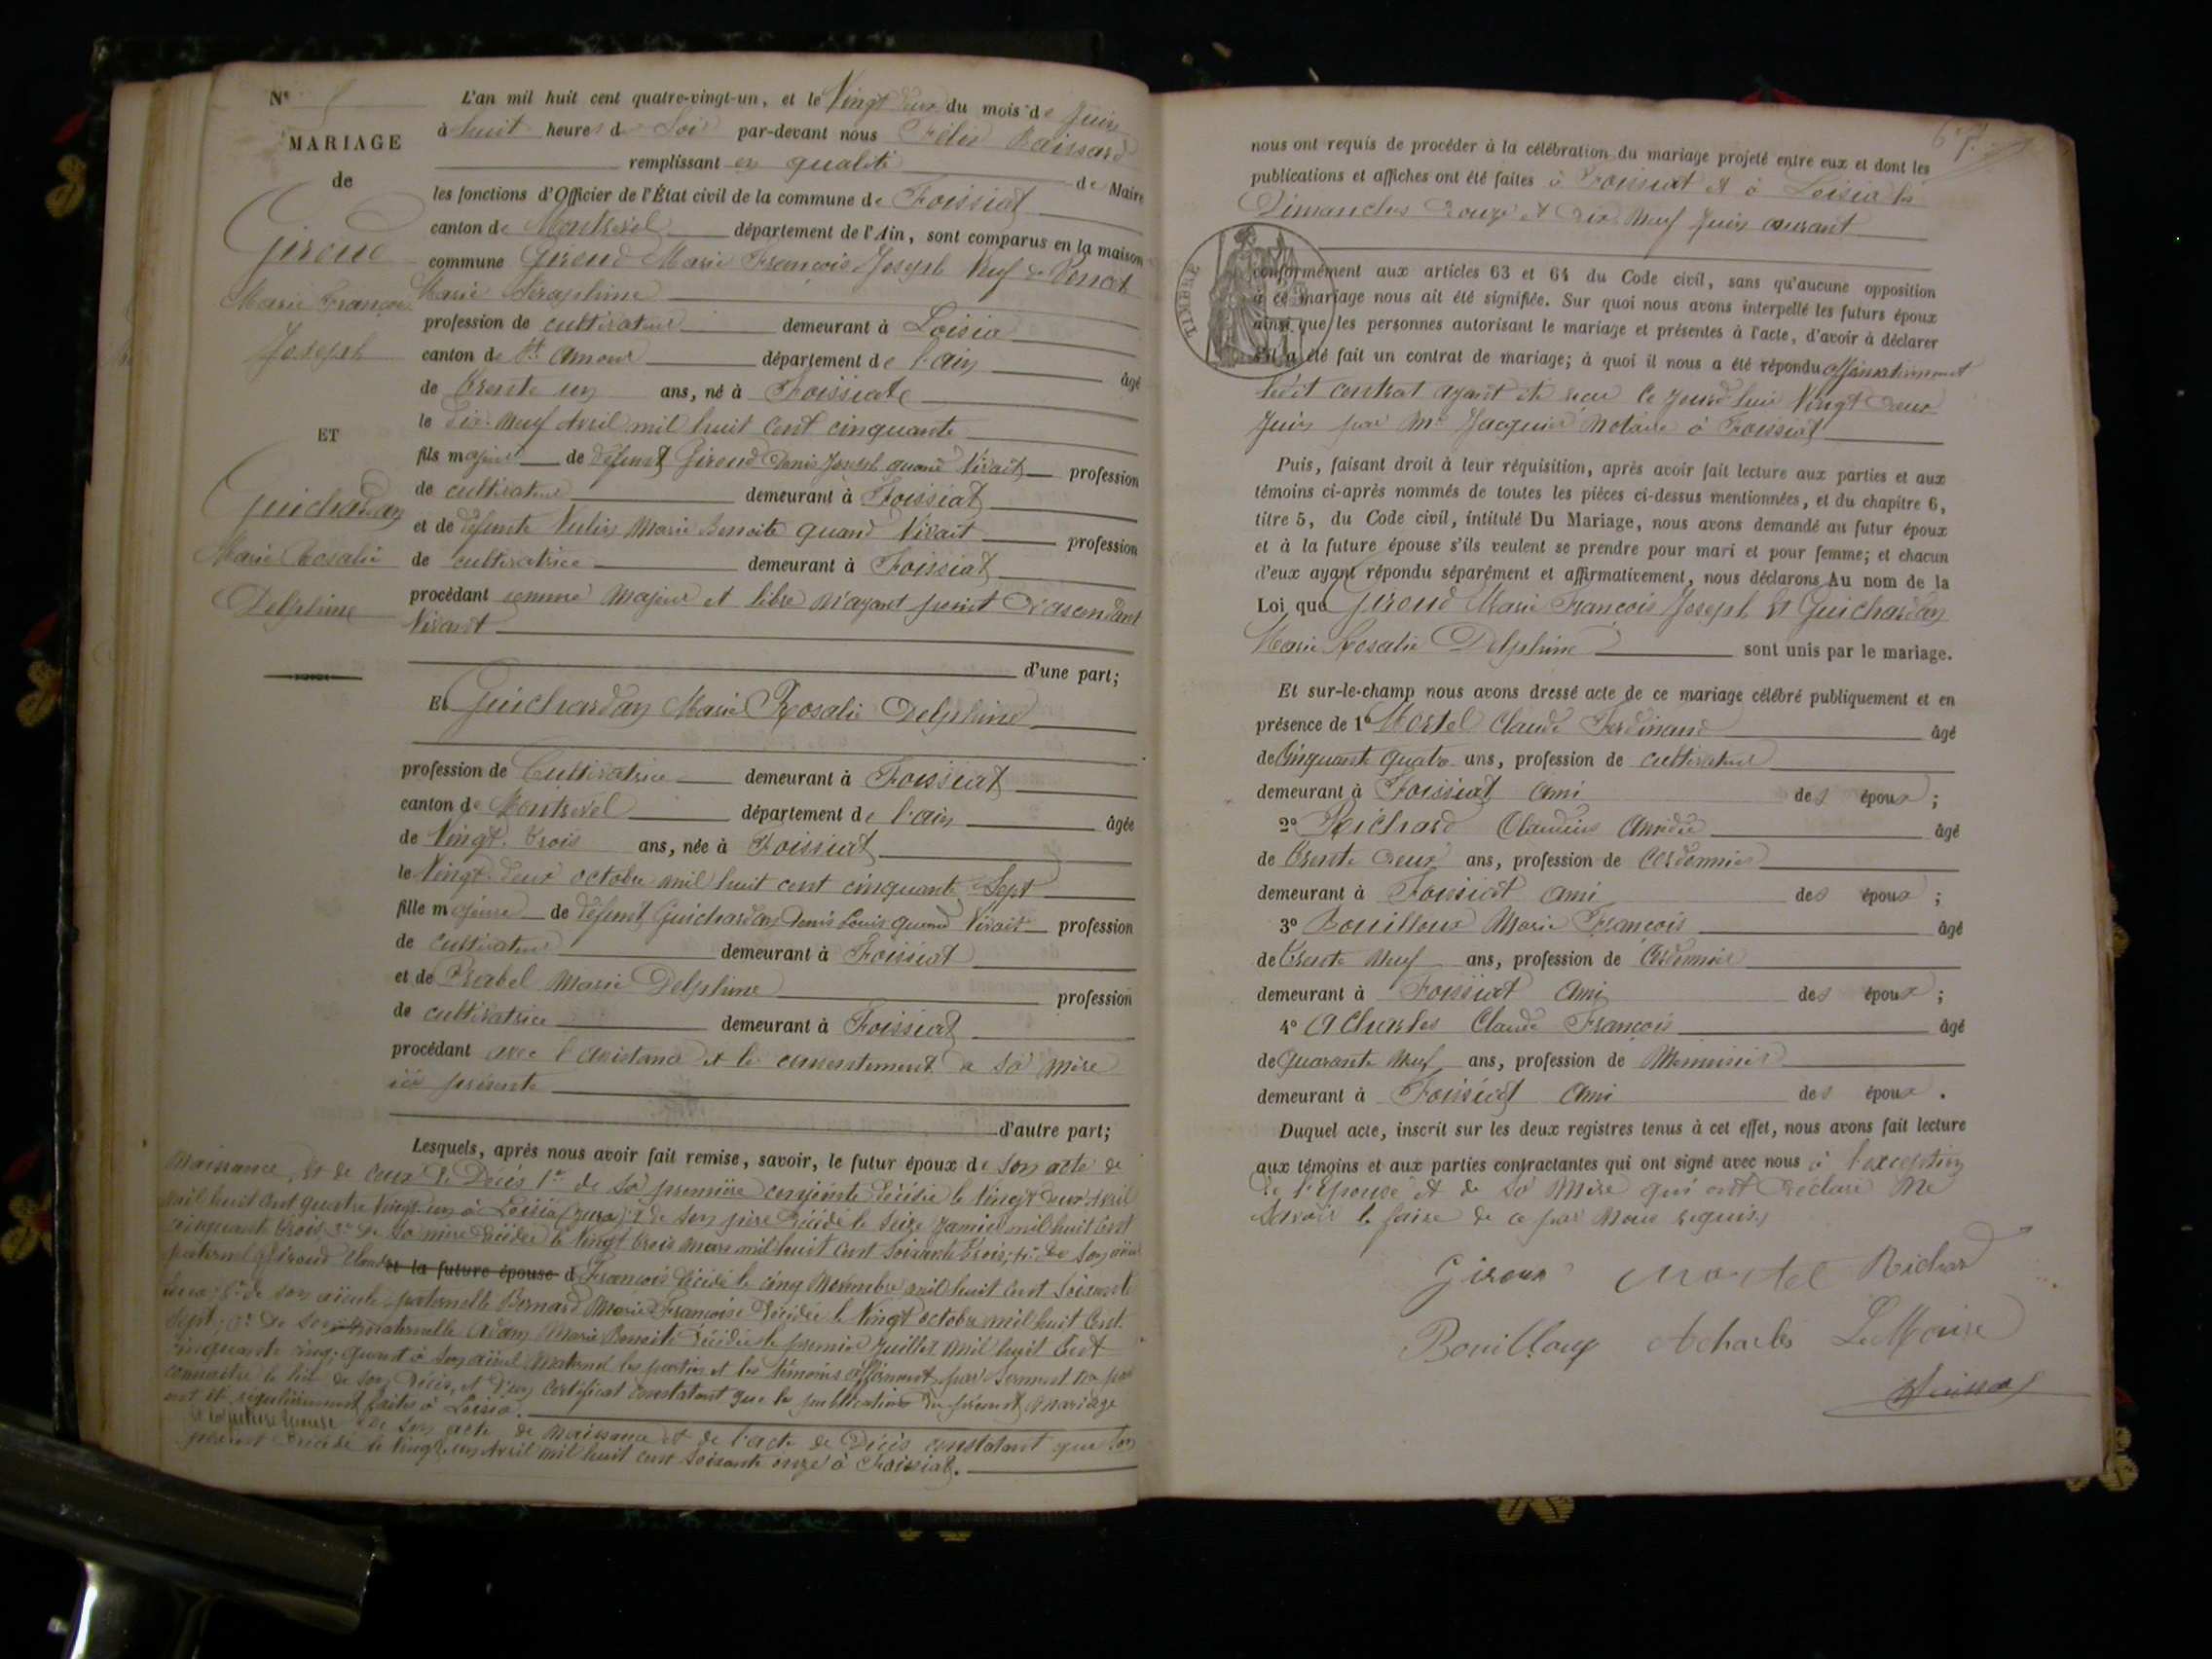 N° 5
MARIAGE
de
Giroud
Marie François
Joseph
ET
Guichardan
Marie Rosalie
Delphine
L'an mil huit cent quatre-vingt-un, et le Vingt deux du mois de Juin
à huit heures du Soir par-devant nous Félix
remplissant en qualité de Maire
les fonctions d'Officier de l'État civil de la commune de Foissiat
canton de Montrevel département de l'Ain, sont comparus en la maison
commune Giroud Marie François Joseph Veuf de
Marie Séraphine
profession de cultivateur demeurant à Loisia
canton de St Amour département de l'ain âgé
de trente un ans, né à Foissiate
le Dix-neuf Avril mil huit cent cinquante
fils majeur de défunt Giroud Denis Joseph quand Vivait profession
de cultivateur demeurant à Foissiat
et de défunte Marie Benoite quand Vivait profession
de cultivatrice demeurant à Foissiat
procédant comme Majeur et libre n'ayant point d'ascendant
Vivant
d'une part;
Et Guichardan Marie Rosalie Delphine
profession de Cultivatrice demeurant à Foissiat
canton de Montrevel département de l'ain âgée
de Vingt trois ans, née à Foissiat
le Vingt-deux octobre mil huit cent cinquante Sept
fille majeure de défunt Guichardan Denis Louis quand Vivait profession
de cultivateur demeurant à Foissiat
et de Prabel Marie Delphine profession
de cultivatrice demeurant à Foissiat
procédant avec l'assistance et le consentement de sa mère
ici présente
d'autre part;
Lesquels, après nous avoir fait remise, savoir, le futur époux de son acte de
Naissance, et de ceux de Décès 1° de sa première conjointe décédée le Vingt deux Avril
mil huit cent quatre Vingt un à Loisia (Jura) 2° de son père Décédé le Seize Janvier mil huit Cent
cinquante trois, 3° de sa mère Décédée le Vingt trois mars mil huit Cent soixante trois; 4° de son aïeul
paternel Giroud Claude et la future épouse d François décédé le cinq Novembre mil huit Cent Soixante
deux 5° de son aïeule paternelle Bernard Marie Françoise décédée le Vingt octobre mil huit Cent
sept; 6° de son maternelle Adam Marie Benoite décédée le premier Juillet mil huit Cent
cinquante cinq; quant à son aïeul Maternel les parties et les témoins affirment par serment ne pas
connaître le lieu de son Décès, et d'un Certificat constatant que les publications du présent Mariage
ont été régulièrement faites à Loisia.
et la future épouse de son acte de Naissance et de l'acte de Décès constatant que son
père est Décédé le Vingt un Avril mil huit cent Soixante onze à Foissiat.
67
nous ont requis de procéder à la célébration du mariage projeté entre eux et dont les
publications et affiches ont été faites à Foissiat et à Loisia les
Dimanches Douze et Dix-Neuf Juin courant
TIMBRE
conformément aux articles 63 et 64 du Code civil, sans qu'aucune opposition
à ce mariage nous ait été signifiée. Sur quoi nous avons interpellé les futurs époux
ainsi que les personnes autorisant le mariage et présentes à l'acte, d'avoir à déclarer
s'il a été fait un contrat de mariage; à quoi il nous a été répondu affirmativement
ledit contrat ayant été reçu ce jourd'hui Vingt Deux
Juin par Me Jacquier Notaire à Foissiat
Puis, faisant droit à leur réquisition, après avoir fait lecture aux parties et aux
témoins ci-après nommés de toutes les pièces ci-dessus mentionnées, et du chapitre 6,
titre 5, du Code civil, intitulé Du Mariage, nous avons demandé au futur époux
et à la future épouse s'ils veulent se prendre pour mari et pour femme; et chacun
d'eux ayant répondu séparément et affirmativement, nous déclarons Au nom de la
Loi que Giroud Marie François Joseph Et Guichardan
Marie Rosalie Delphine sont unis par le mariage.
Et sur-le-champ nous avons dressé acte de ce mariage célébré publiquement et en
présence de 1° Mortel Claude Ferdinand âgé
de Cinquante quatre ans, profession de cultivateur
demeurant à Foissiat Ami des époux;
2° Richard Claudius Amédée âgé
de trente Deux ans, profession de Cordonnier
demeurant à Foissiat Ami des époux;
3° Bouilloux Marie François âgé
de trente Neuf ans, profession de Cordonnier
demeurant à Foissiat Ami des époux;
4° Acharles Claude François âgé
de Quarante Neuf ans, profession de Menuisier
demeurant à Foissiat Ami des époux.
Duquel acte, inscrit sur les deux registres tenus à cet effet, nous avons fait lecture
aux témoins et aux parties contractantes qui ont signé avec nous à l'exception
de l'épouse et de sa Mère qui ont Déclaré Ne
Savoir le faire de ce par Nous requis
Giroud Mortel Richard
Bouilloux Acharles Le Maire